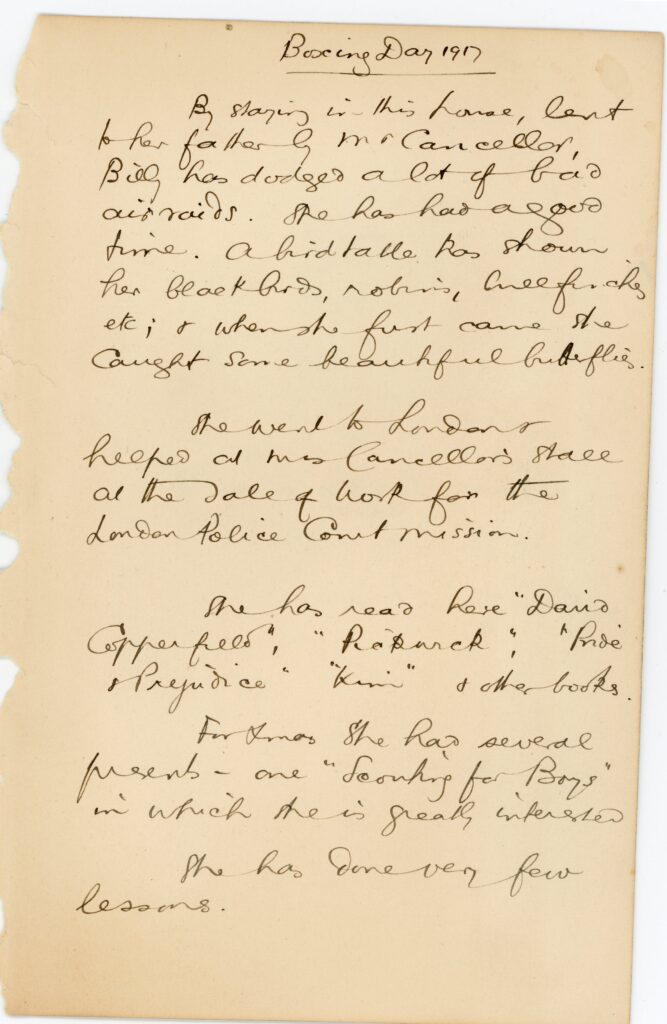 Boxing Day 1917
By staying in this house, lent
to her father by Mr Cancellor,
Billy has dodged a lot of bad
air raids. She has had a good
time. A bird table has shown
her blackbirds, robins, bullfinches
etc; & when she first came she
caught some beautiful butterflies.
She went to London &
helped at Mrs Cancellor's stall
at the Sale of Work for the
London Police Court Mission.
She has read here "David
Copperfield", "Pickwick", "Pride
& Prejudice" "Kim" & other books.
For Xmas she had several
presents - one "Scouting for Boys"
in which she is greatly interested
She has done very few
lessons.